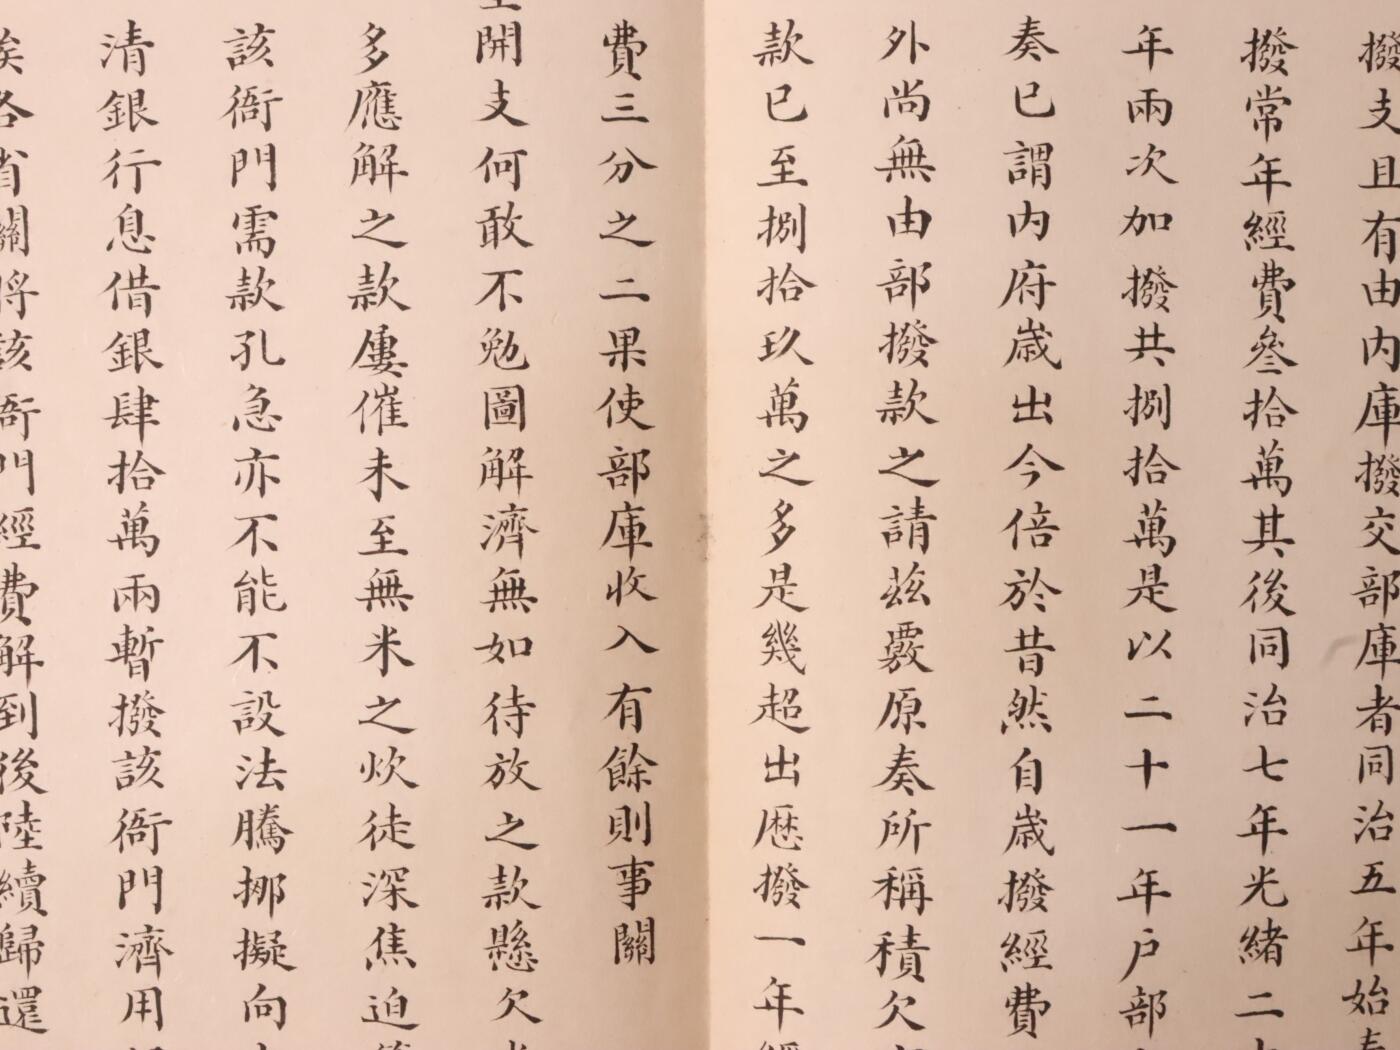 撥支且有由内庫撥交部庫者同治五年始
撥常年經費叄拾萬其後同治七年光緒二
年兩次加撥共捌拾萬是以二十一年户部
奏已謂内府歲出今倍於昔然自歲撥經費
外尚無由部撥款之請茲覈原奏所稱積欠
款已至捌拾玖萬之多是幾超出歷撥一年
費三分之二果使部庫收入有餘則事關
開支何敢不勉圖解濟無如待放之款懸欠
多應解之款屢催未至無米之炊徒深焦迫
該衙門需款孔急亦不能不設法騰挪擬向
清銀行息借銀肆拾萬兩暫撥該衙門濟用
俟各省關將該衙門經費解到後陸續歸還